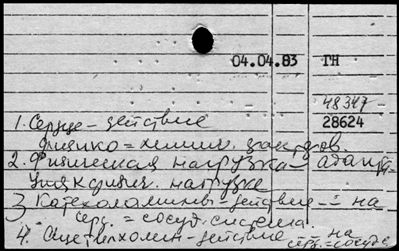 04.04.83 ГН
48347
28624
1. Сердце – действие
физико = химич. факторов.
2. Физическая нагрузка – адап
ция к физич. нагрузке
3) Катехоламины – действие – на
серд. = сосуд. система.
4. Ацетилхолин – действие – на
серд. = сосуд